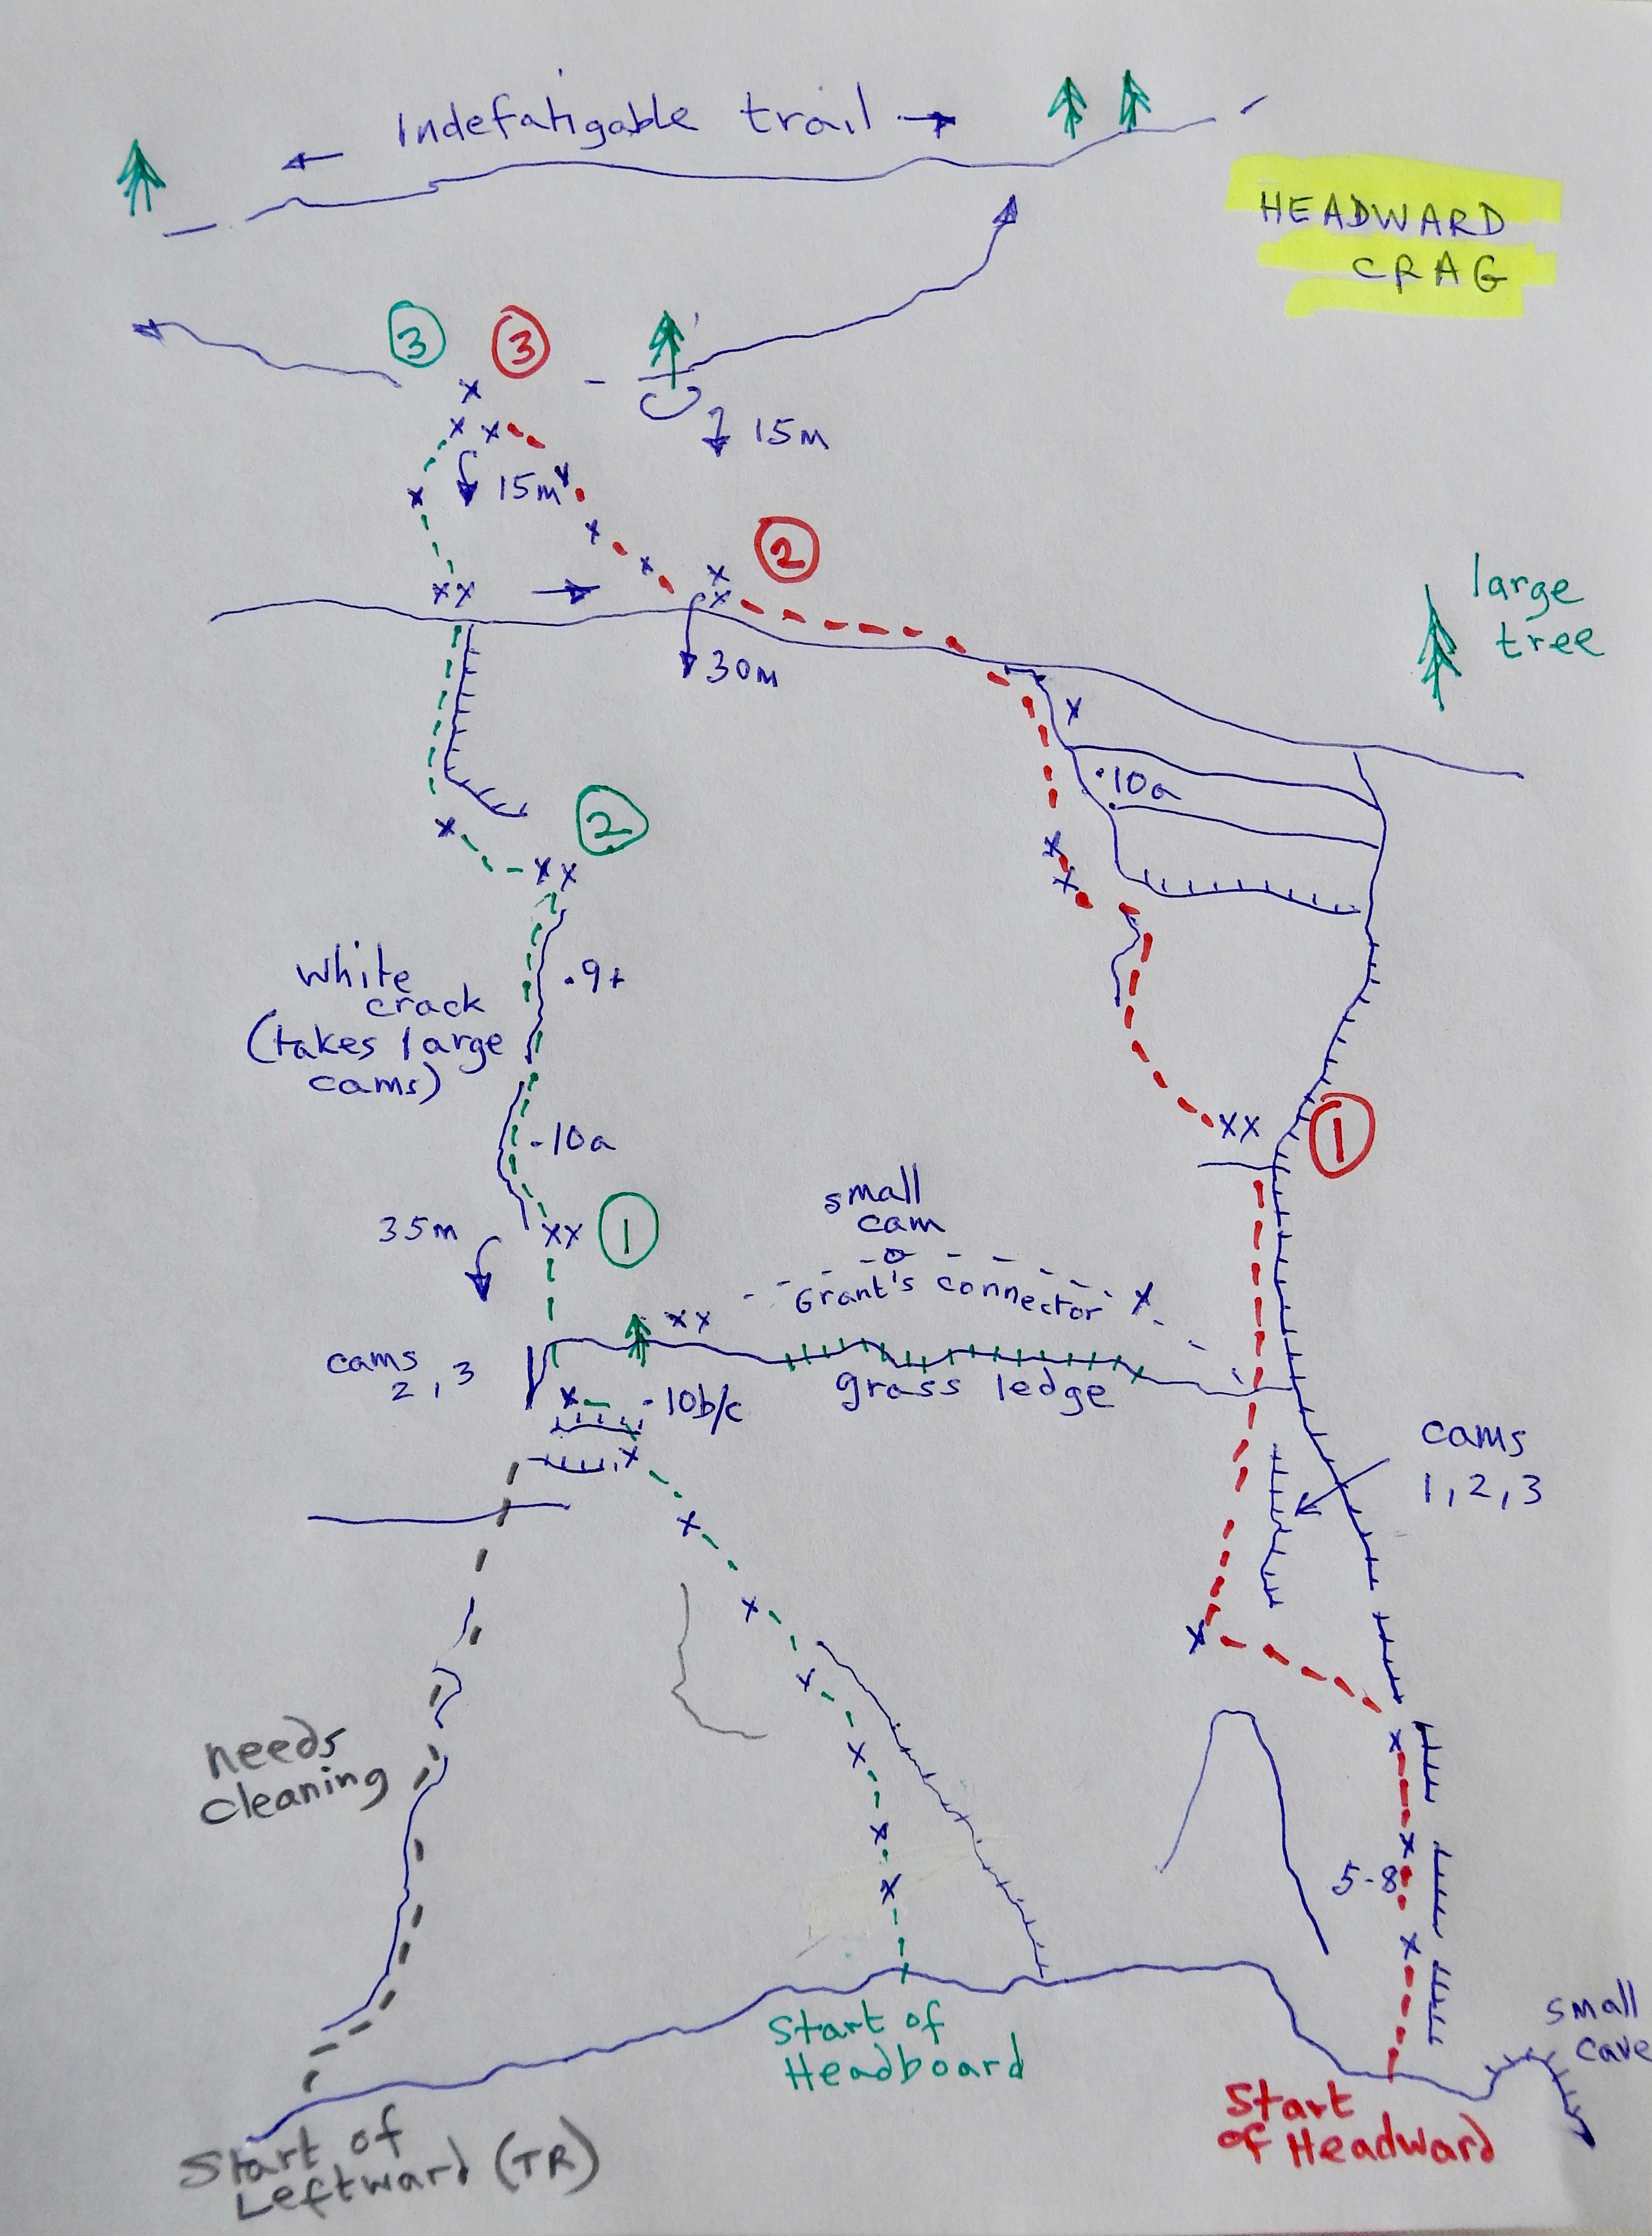 ← Indefatigable trail →
HEADWARD
CRAG
3
3
15m
15m
2
30m
large
tree
.10a
2
white
crack
(takes large
cams)
.9+
.10a
1
35m
1
small
cam
Grant's connector
cams
2, 3
.10b/c
grass ledge
cams
1, 2, 3
needs
cleaning
5-8
Start of
Headboard
small
cave
Start
of Headward
Start of
Leftward (TR)